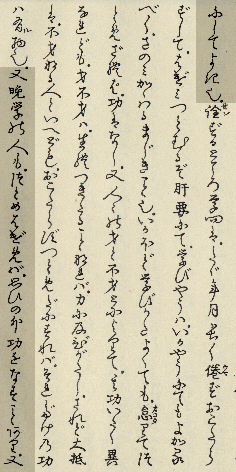 にしてよき也。詮ずるところ学問は。たゞ年月長く倦ずおこたら
ずして。はげみつとむるぞ肝要にて。学びやうは。いかやうにてもよかる
べく。さのみかゝはるまじきこと也。いかほど学びかたよくても。怠りてつ
とめざれば功はなし。又人々の才と不才とによりて。其功いたく異
なれども。才不才は。生れつきたることなれば。力に及びがたし。されど大抵
は。不才なる人といへども。おこたらずつとめだにすれば。それだけの功
は有物也。又晩学の人も。つとめはげめば。思ひの外功をなすことあり。又